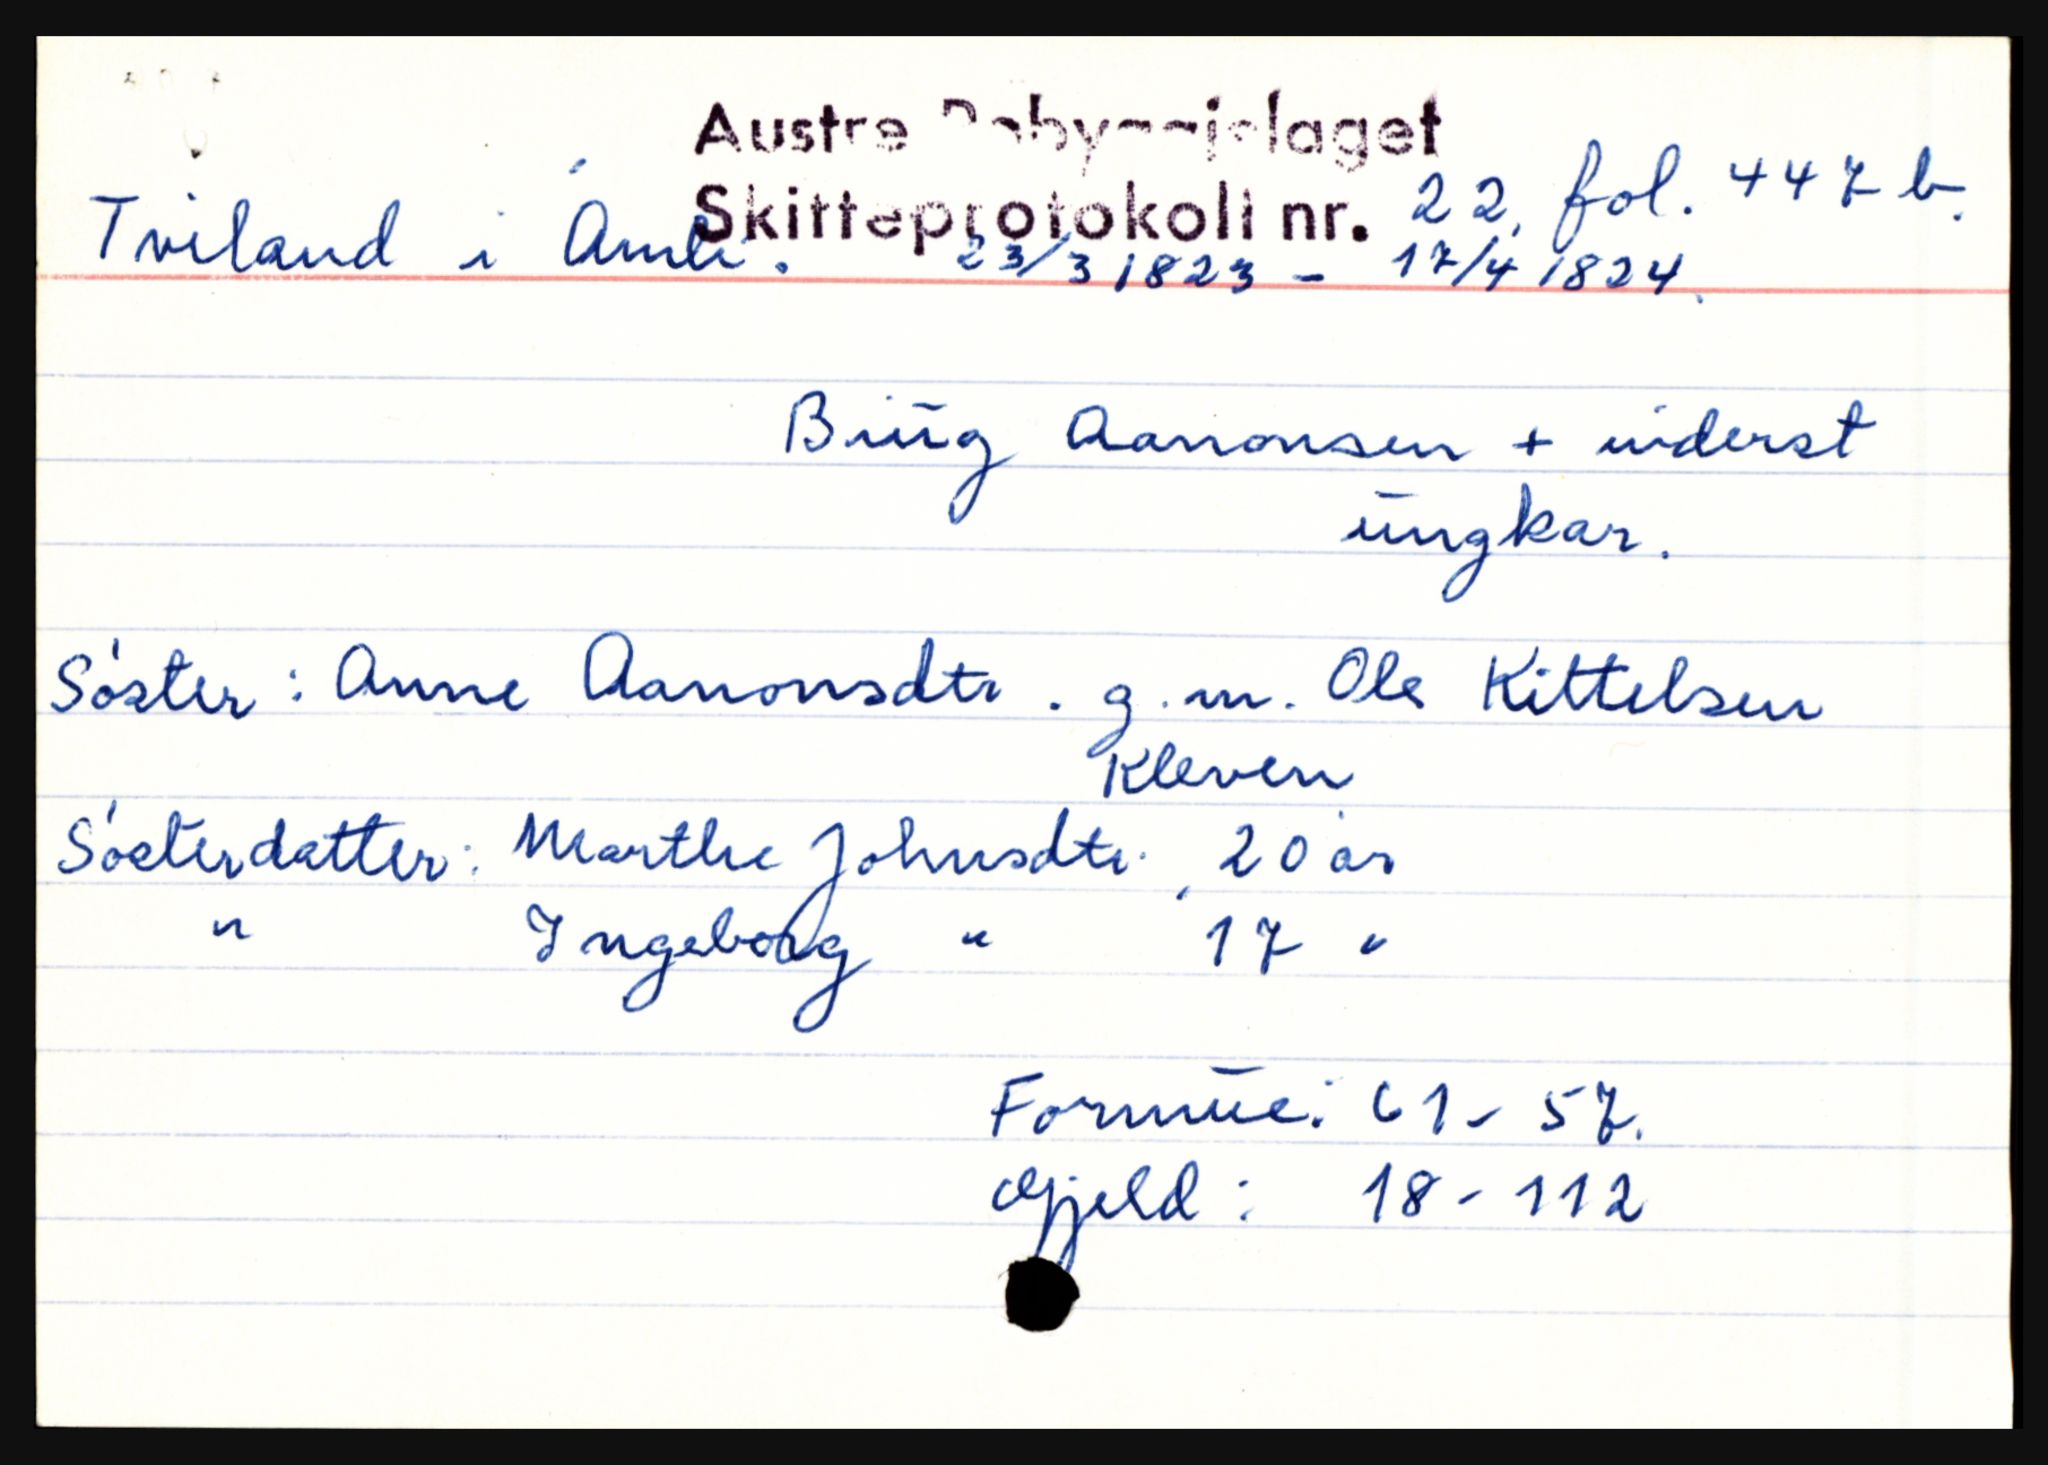 Austre Robyggjelaget
Skifteprotokoll nr. 22. fol. 447 b.
Tviland i Åmli. 23/3 1823 - 17/4 1824.
Aanonsen + inderst
ungkar.
Söster: Anne Aanonsdtr. g.m. Ole Kittelsen
Kleven
Sösterdatter: Marthe Johnsdtr. , 20 år
" Ingeborg " 17 "
Formue: 61 - 57.
Gjeld: 18 - 112